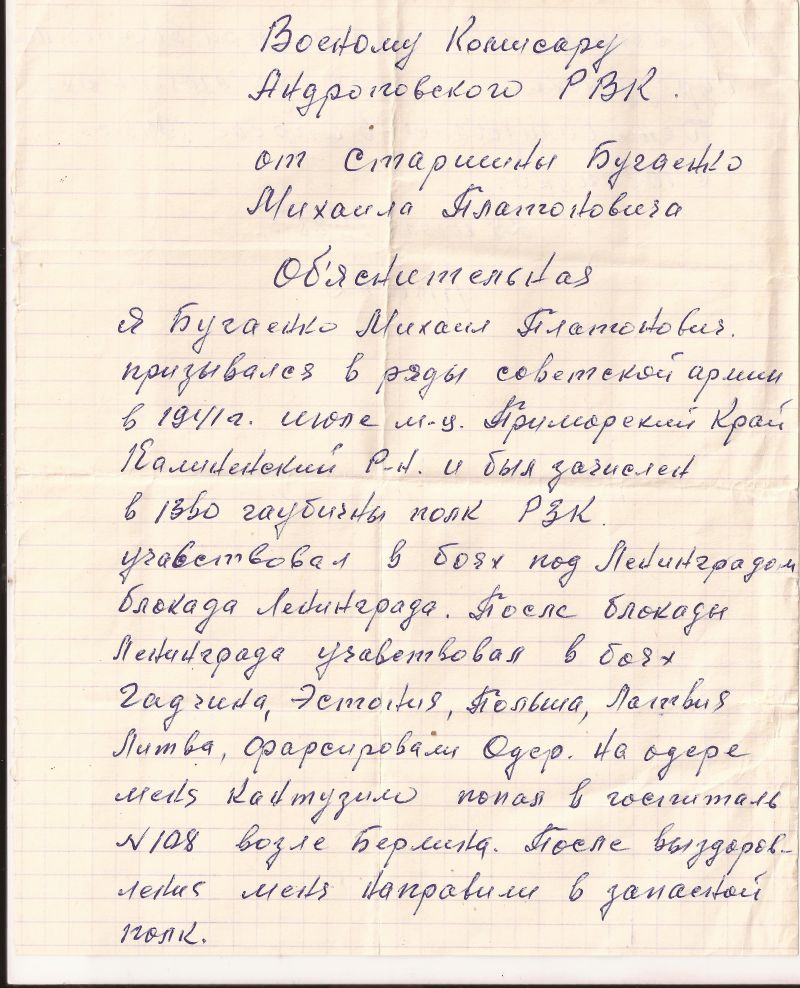 Военому Комисару
Андроповского РВК.
от старшины Бугаенко
Михаила Платоновича
Об'яснительная
Я Бугаенко Михаил Платонович.
призывался в ряды советской армии
в 1941г. июле м-ц. Приморский Край
Калиненский Р-н. и был зачислен
в гаубичны полк РЗК.
учавствовал в боях под Ленинградом
блокада Ленинграда. После блокады
Ленинграда учавствовал в боях
Гадчина, Эстония, Польша, Латвия
Литва, фарсировали Одер. На одере
меня кантузило попал в госпиталь
N 108 возле Берлина. После выздоров-
ления меня направили в запасной
полк.